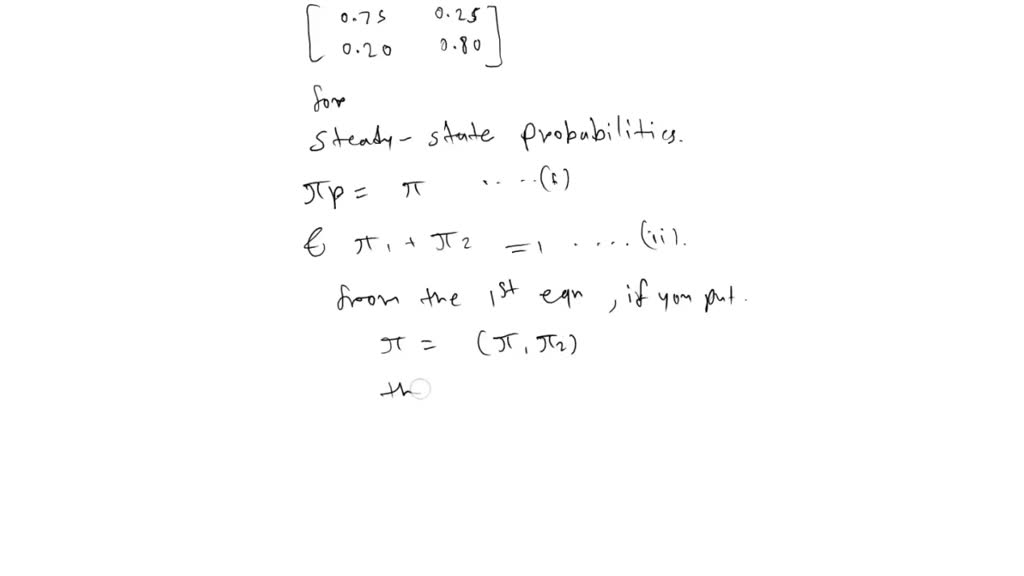 [0.75 0.25
0.20 0.80]
for
Steady-state probabilities.
πp = π ....(i)
& π1 + π2 = 1 .....(ii).
from the 1st eqn, if you put.
π = (π1 π2)
th